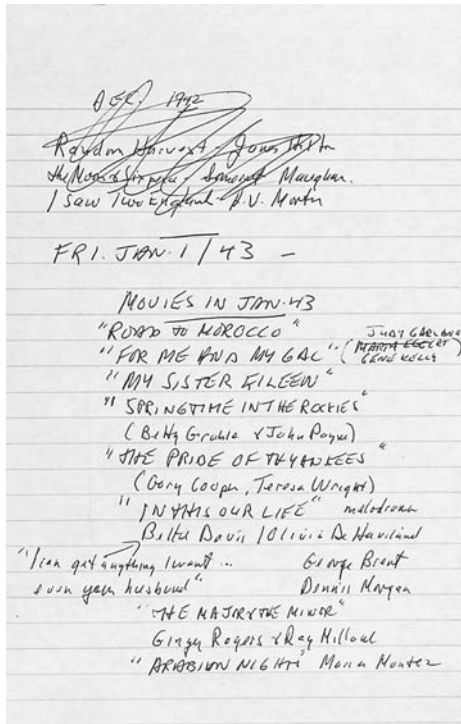 DEC. 1942
Random Harvest - James Hilton
the Moon & Sixpence - Somerset Maugham.
I Saw Two England - H.V. Morton
FRI. JAN. 1 / 43 -
MOVIES IN JAN. 43
"ROAD TO MOROCCO"
"FOR ME AND MY GAL" (JUDY GARLAND
GENE KELLY)
"MY SISTER EILEEN"
"SPRINGTIME IN THE ROCKIES"
(Betty Grable & John Payne)
"THE PRIDE OF TH YANKEES"
(Gary Cooper, Teresa Wright)
"IN THIS OUR LIFE" melodrama
Bette Davis / Olivia De Haviland
"I can get anything I want ... George Brent
even your husband" Dennis Morgan
"THE MAJOR & THE MINOR"
Ginger Rogers & Ray Milland
"ARABIAN NIGHTS" Maria Montez